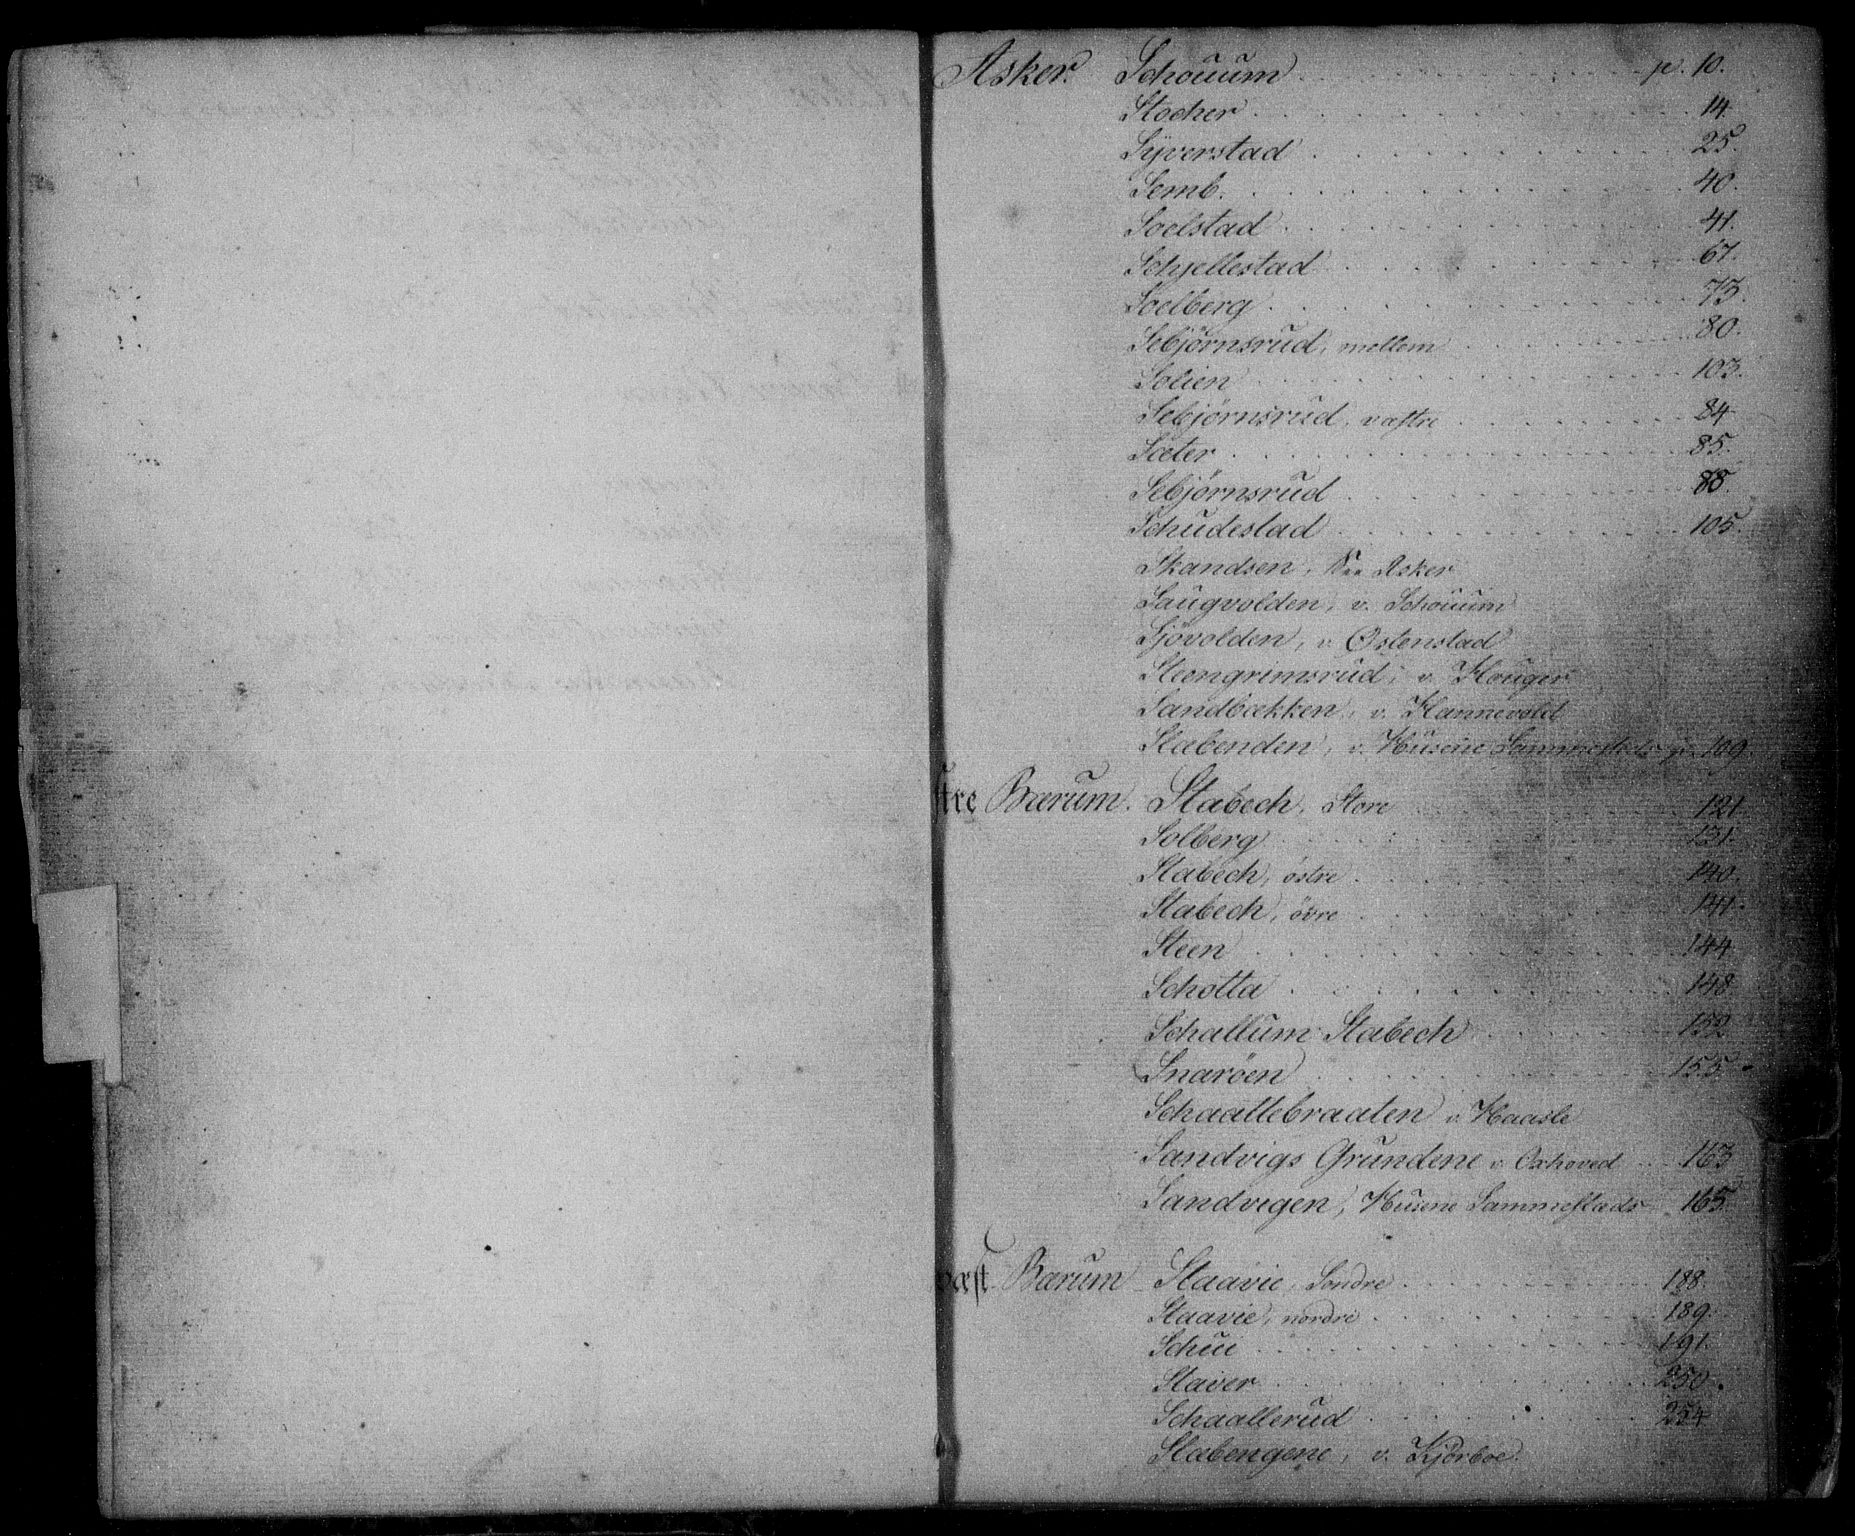 Asker. Schouum p. 10.
Stocker 14
Syverstad 25.
Semb. 40.
Soelstad 41.
Schjellestad 67.
Soelberg 73.
Sebjörnsrud, mellem 80.
Solien 103.
Sebjörnsrud, væstre 84
Sæter 85.
Sebjörnsrud 88.
Schudestad 105.
Skandsen, Asker
Saugvolden, v. Schouum
Sjövolden, v. Østenstad
Steengrimsrud, v. Houger
Sandbækken, v. Hannevold
Slabenden, v. Husene Sammesteds p. 109.
stre Bærum. Stabech, Store 121.
Solberg 131.
Stabech, östre 140.
Stabech, övre 141.
Steen 144
Schotta 148
Schallum Stabech 152
Snaröen 155
Schaallebraaten v. Haasle
Sandvigs Grundene v. Oxhoved 163
Sandvigen, Husene Sammesteds 165.
væst Bærum Staavie, Söndre 188.
Staavie, nordre 189.
Schui 191.
Staver 250.
Schaallerud 254
Slabengene, v. Kjörboe.